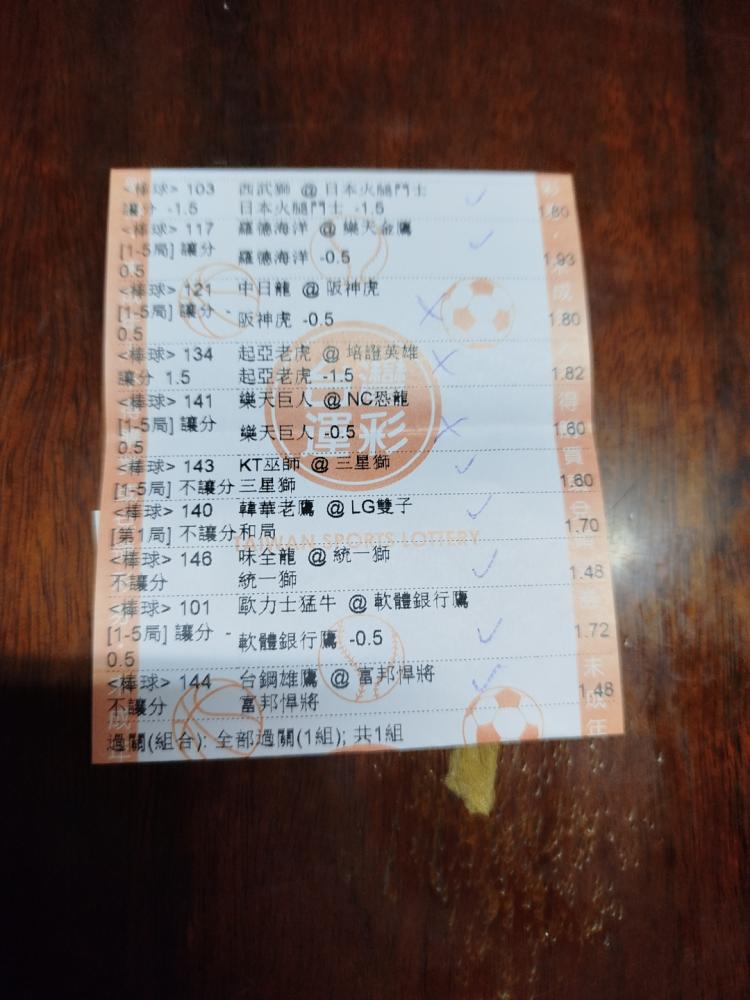 <棒球> 103 西武獅 @ 日本火腿鬥士
讓分 -1.5 日本火腿鬥士 -1.5 1.80
<棒球> 117 羅德海洋 @ 樂天金鷹
[1-5局] 讓分 0.5 羅德海洋 -0.5 1.93
<棒球> 121 中日龍 @ 阪神虎
[1-5局] 讓分 -0.5 阪神虎 -0.5 1.80
<棒球> 134 起亞老虎 @ 培證英雄
讓分 1.5 起亞老虎 -1.5 1.82
<棒球> 141 樂天巨人 @NC恐龍
[1-5局] 讓分 0.5 樂天巨人 -0.5 1.60
<棒球> 143 KT巫師 @ 三星獅
[1-5局] 不讓分 三星獅 1.60
<棒球> 140 韓華老鷹 @ LG雙子
[第1局] 不讓分 和局 1.70
<棒球> 146 味全龍 @ 統一獅
不讓分 統一獅 1.48
<棒球> 101 歐力士猛牛 @ 軟體銀行鷹
[1-5局] 讓分 -0.5 軟體銀行鷹 -0.5 1.72
<棒球> 144 台鋼雄鷹 @ 富邦悍將
不讓分 富邦悍將 1.48
過關(組合): 全部過關(1組); 共1組
台灣運彩
TAIWAN SPORTS LOTTERY
未成年